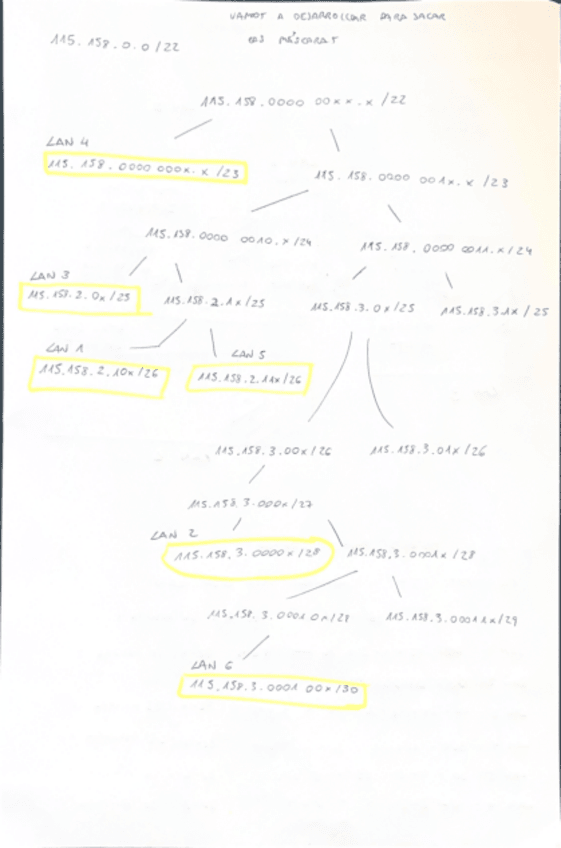 VAMOS A DESARROLLAR PARA SACAR
LAS MÁSCARAS
115.158.0.0/22
115.158.0000 00xx.x/22
LAN 4
115.158.0000 000x.x/23
115.158.0000 001x.x/23
115.158.0000 0010.x/24
115.158.0000 0011.x/24
LAN 3
115.158.2.0x/25
115.158.2.1x/25
115.158.3.0x/25
115.158.3.1x/25
LAN 1
115.158.2.10x/26
LAN 5
115.158.2.11x/26
115.158.3.00x/26
115.158.3.01x/26
115.158.3.000x/27
LAN 2
115.158.3.0000x/28
115.158.3.0001x/28
115.158.3.00010x/29
115.158.3.00011x/29
LAN 6
115.158.3.0001 00x/30